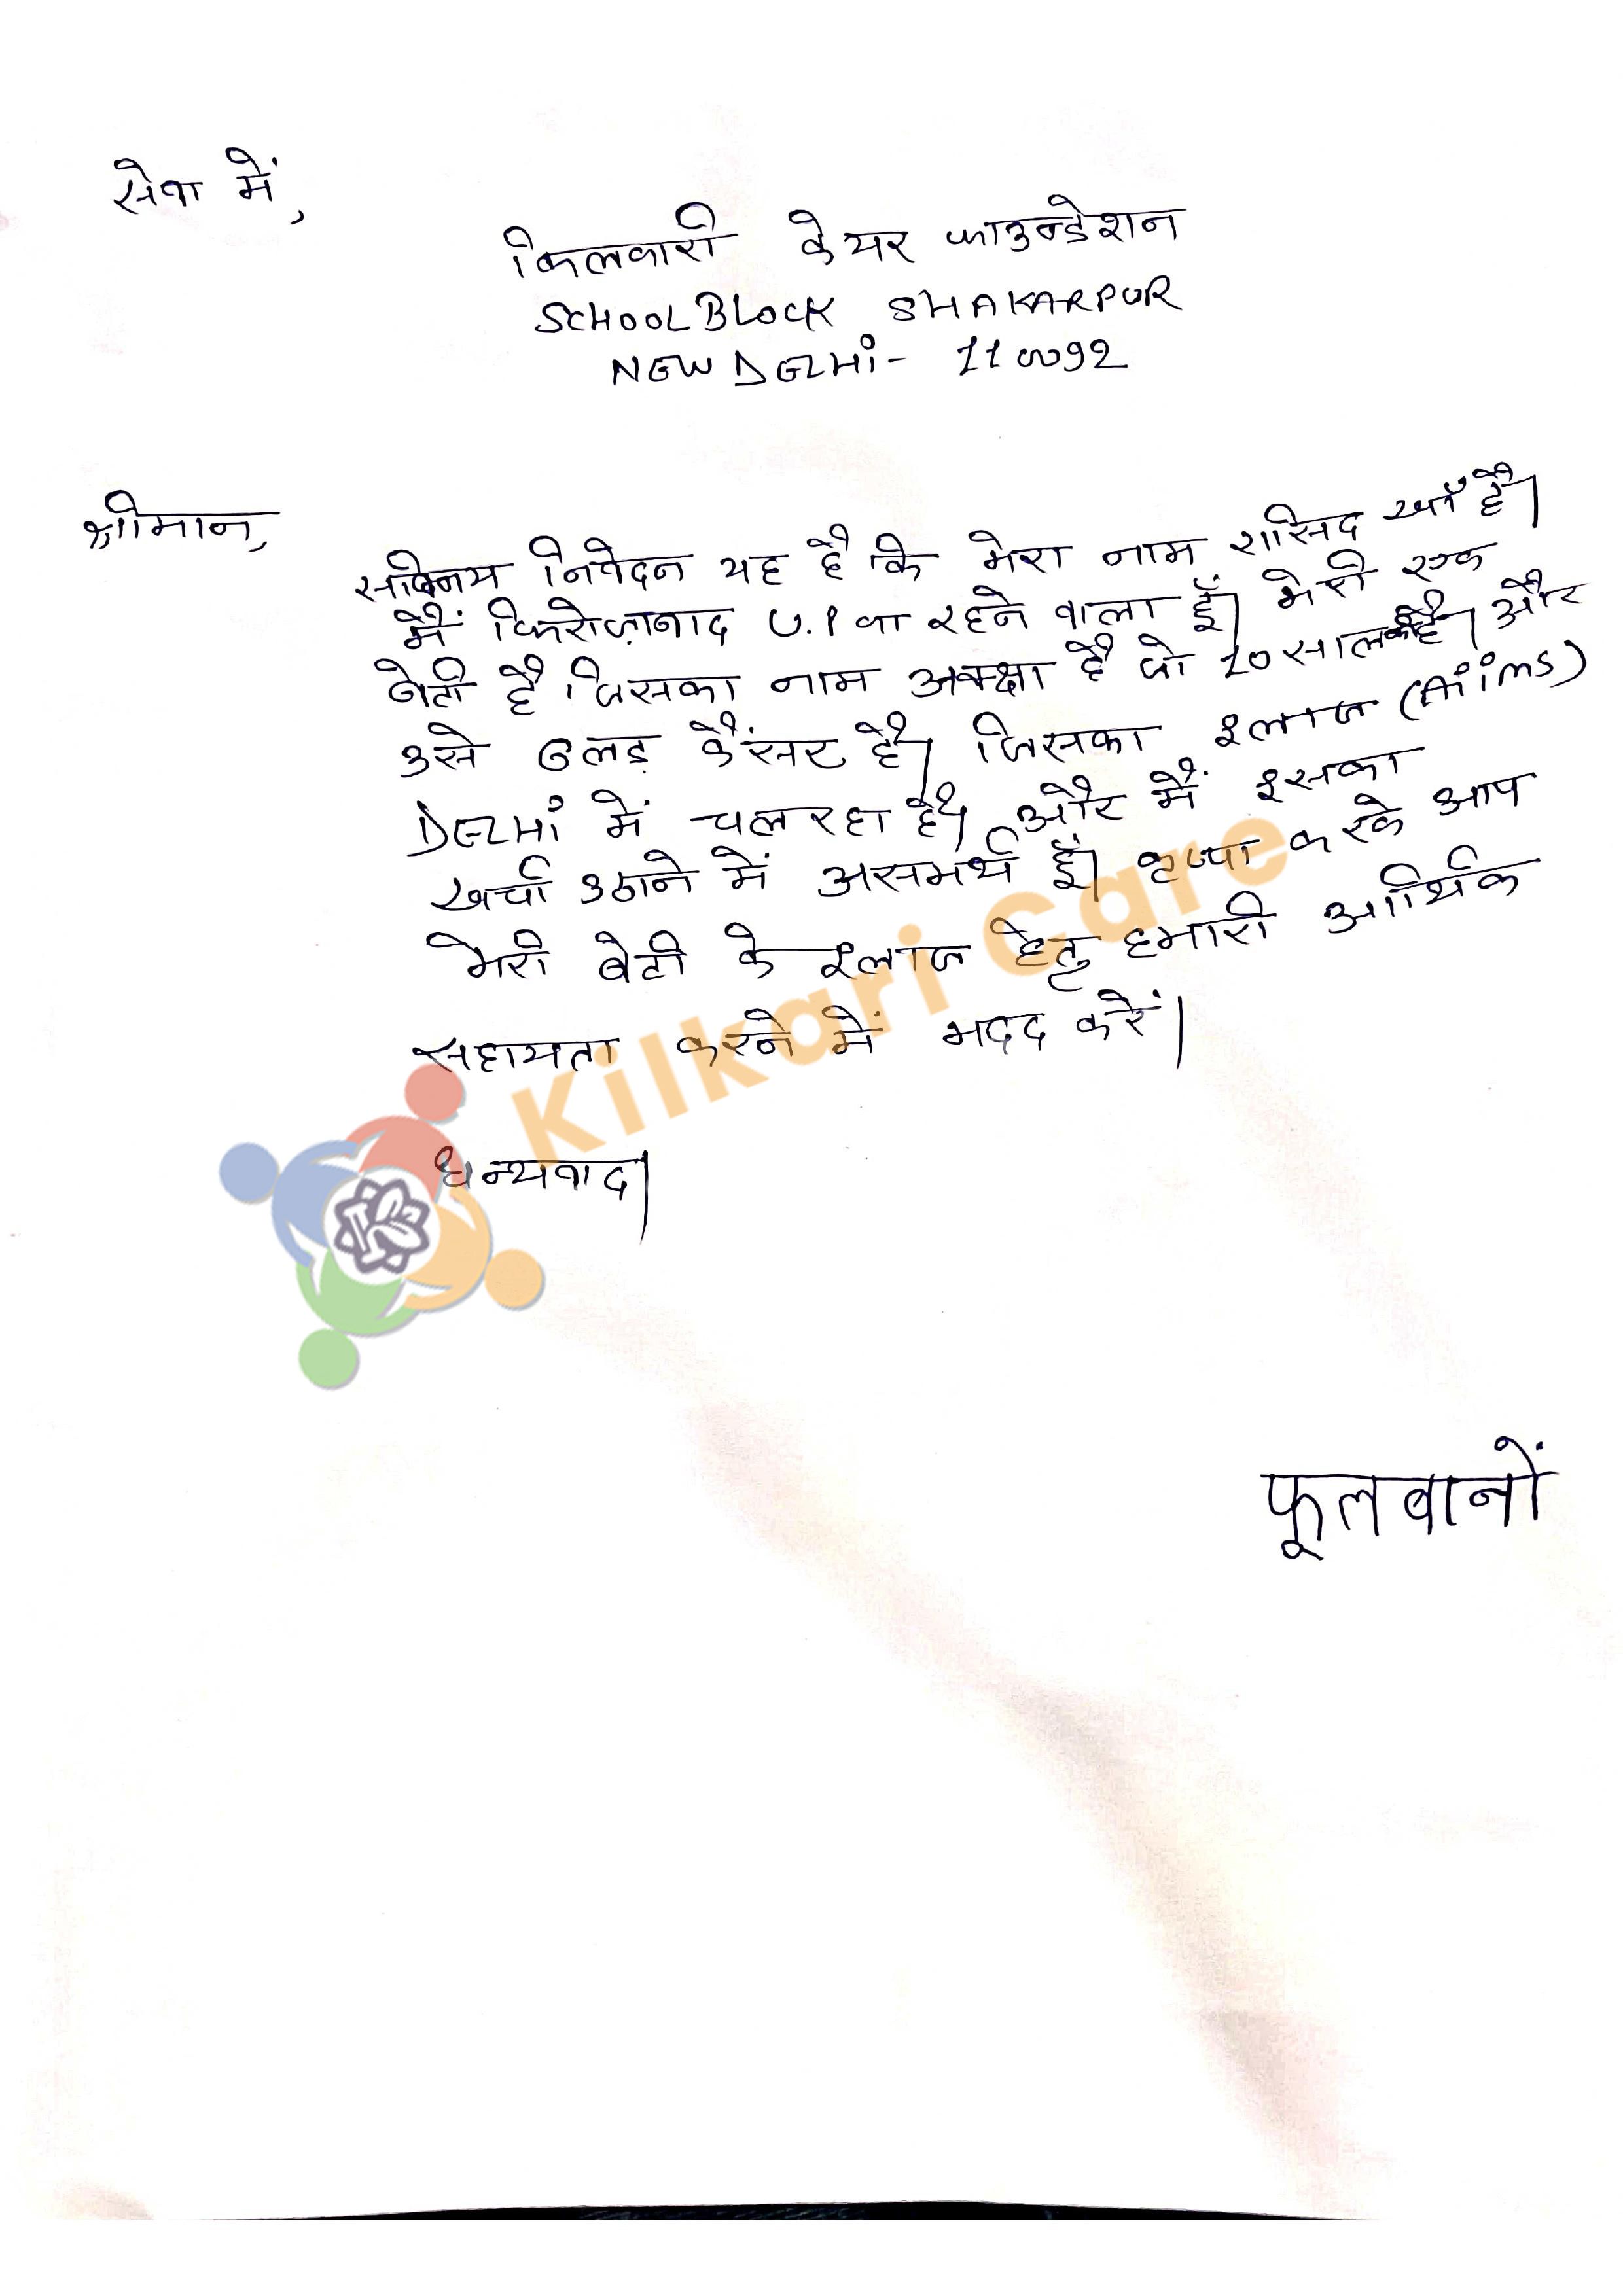 सेवा में,
किलकारी केयर फाउन्डेशन
SCHOOL BLOCK SHAKARPUR
NEW DELHi - 110092
श्रीमान,
सविनय निवेदन यह है कि मेरा नाम रासिद खाँ है।
मैं फिरोज़ाबाद U.P का रहने वाला हूँ। मेरी एक
बेटी है जिसका नाम अक्क्षा है जो 10 साल की है। और
उसे ब्लड़ कैंसर है। जिसका इलाज (Aiims)
DELHi में चल रहा है। और में इसका
खर्चा उठाने में असमर्थ हूँ। कृप्पा करके आप
मेरी बेटी के इलाज हेतु हमारी आर्थिक
सहायता करने में मदद करें।
Kilkari Care
धन्यवाद।
फूलबानों